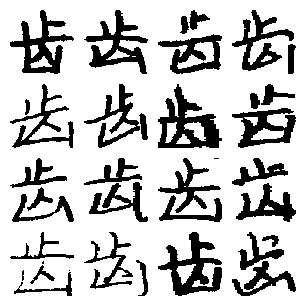 齿齿齿齿
齿齿齿齿
齿齿齿齿
齿齿齿齿